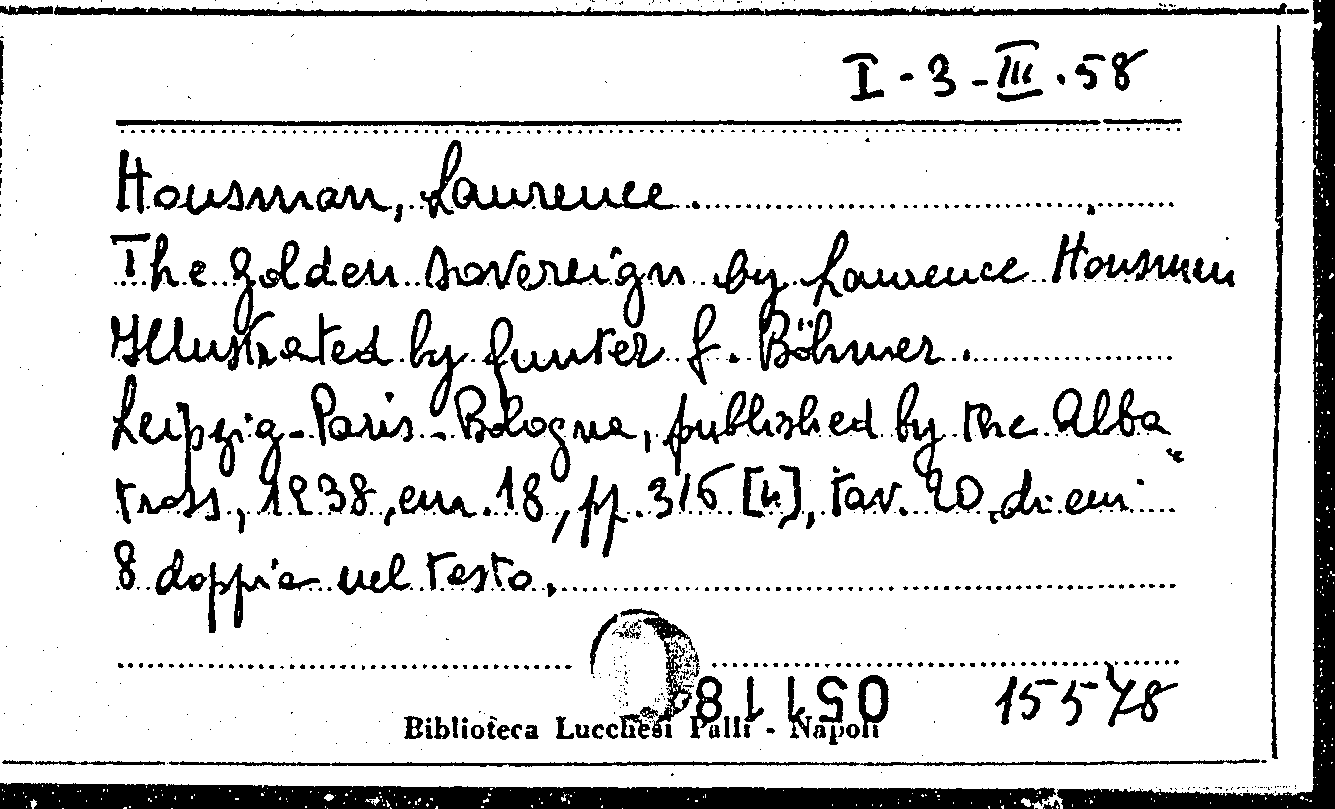 I-3-III.58
Housman, Laurence.
The golden sovereign by Laurence Housman
Illustrated by Gunter G. Böhmer.
Leipzig-Paris-Bologna, published by the Alba
tross, 1938, cm. 18, pp. 316 [4], tav. 20 di cui
8 doppie nel testo.
05118
15578
Biblioteca Lucchesi Palli - Napoli